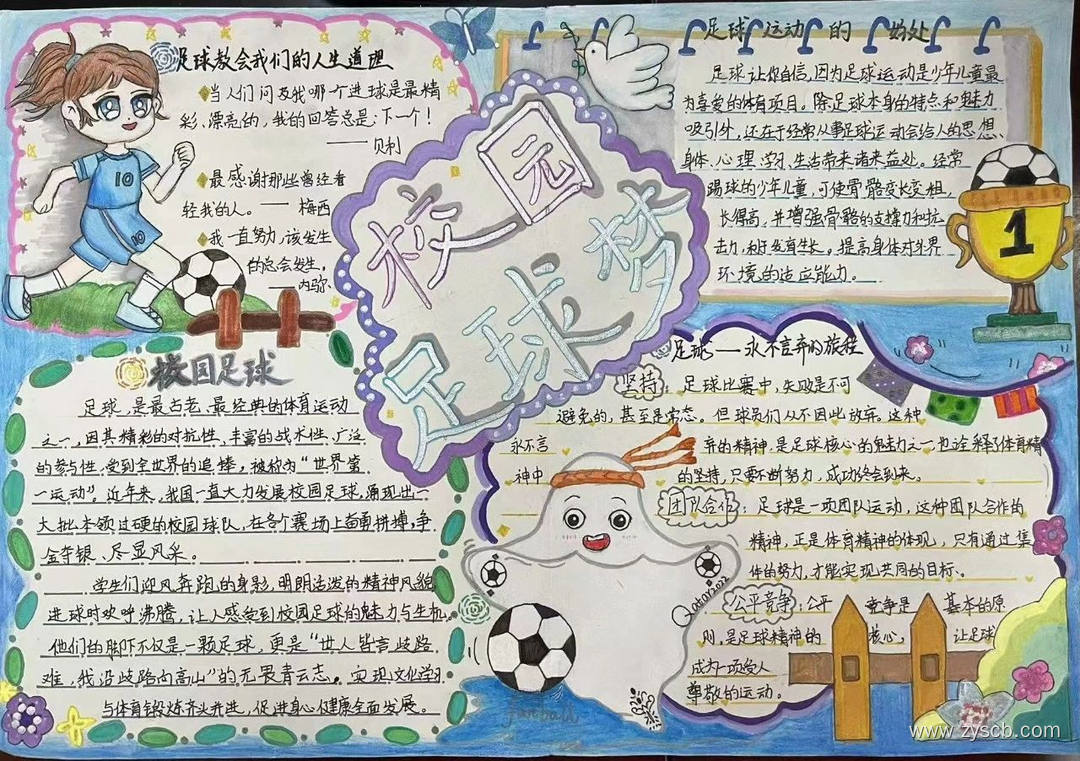 足球教会我们的人生道理
当人们问及我哪个进球是最精
彩、漂亮的，我的回答总是：下一个！
——贝利
最感谢那些曾经看
轻我的人。——梅西
我一直努力，该发生
的总会发生。
——内马尔
校园
足球梦
足球运动的好处
足球让你自信，因为足球运动是少年儿童最
为喜爱的体育项目。除足球本身的特点和魅力
吸引外，还在于经常从事足球运动会给人的思想、
身体、心理、学习、生活带来诸来益处。经常
踢球的少年儿童，可使骨骼变长变粗，
长得高，并增强骨骼的支撑力和抗
击力，利于发育生长。提高身体对外界
环境的适应能力。
1
10
10
校园足球
足球，是最古老、最经典的体育运动
之一，因其精彩的对抗性、丰富的战术性、广泛
的参与性，受到全世界的追捧，被称为“世界第
一运动”。近年来，我国一直大力发展校园足球，涌现出一
大批本领过硬的校园球队，在各个赛场上奋勇拼搏，争
金夺银、尽显风采。
学生们迎风奔跑的身影，明朗活泼的精神风貌
进球时欢呼沸腾，让人感受到校园足球的魅力与生机。
他们的脚下不仅是一颗足球，更是“世人皆言歧路
难，我沿歧路向高山”的无畏青云志。实现文化学习
与体育锻炼齐头并进，促进身心健康全面发展。
足球——永不言弃的旅程
坚持：足球比赛中，失败是不可
避免的，甚至是常态。但球员们从不因此放弃。这种
永不言 弃的精神，是足球核心的魅力之一也诠释了体育精
神中 的坚持，只要不断努力，成功终会到来。
团队合作：足球是一项团队运动，这种团队合作的
精神，正是体育精神的体现，只有通过集
体的努力，才能实现共同的目标。
公平竞争：公平 竞争是 基本的原
则，是足球精神的 核心， 让足球
成为一项受人
尊敬的运动。
Qatar2022
football
www.zyscb.com